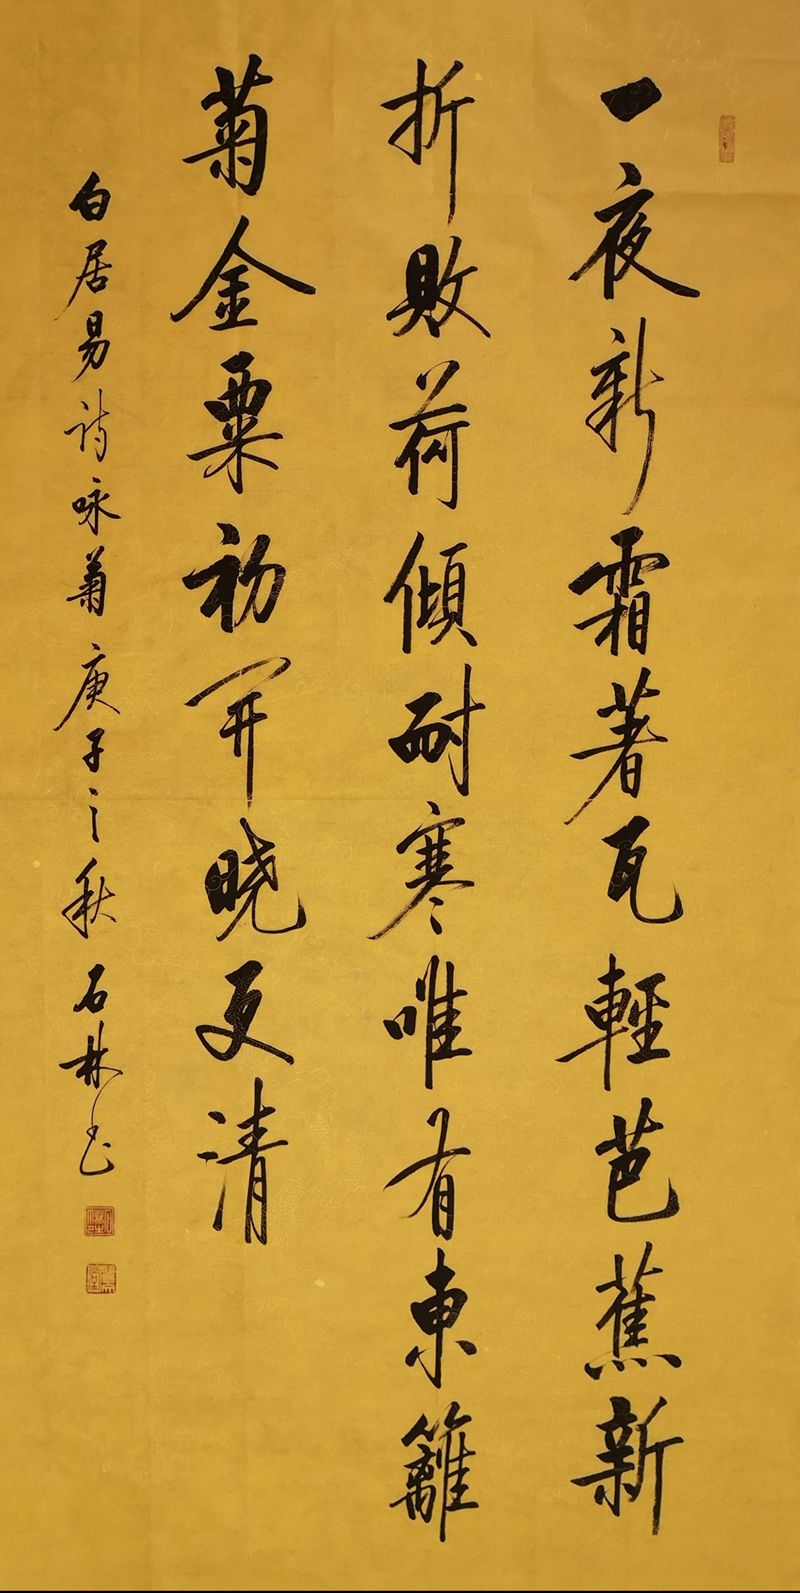 一夜新霜著瓦輕芭蕉新
折敗荷傾耐寒唯有東籬
菊金粟初開曉更清
白居易詩咏菊庚子之秋石林书